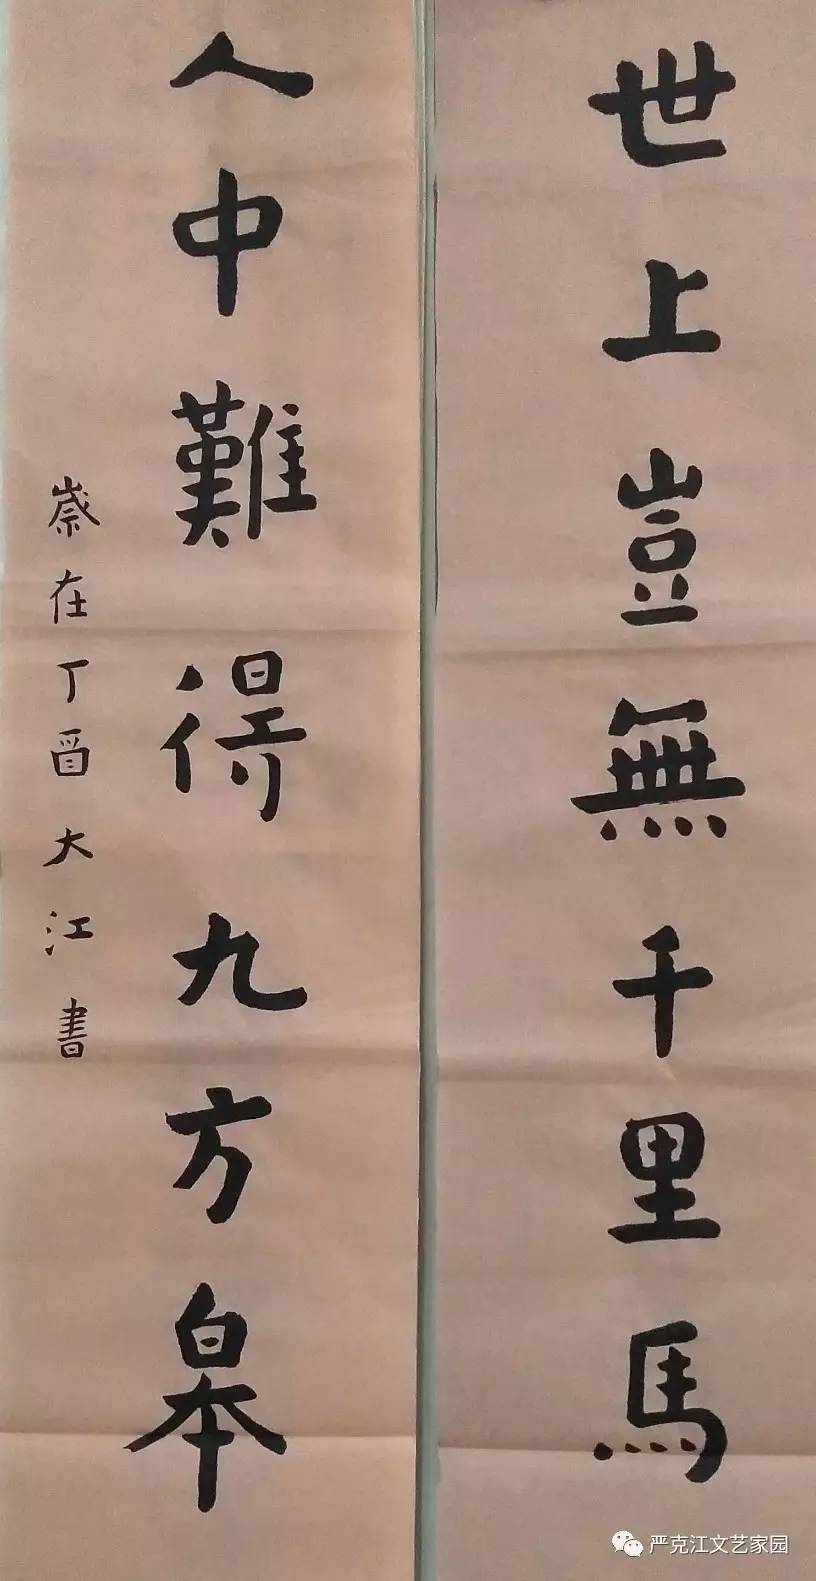 世上豈無千里馬
人中難得九方皋
崴在丁酉大江書
严克江文艺家园